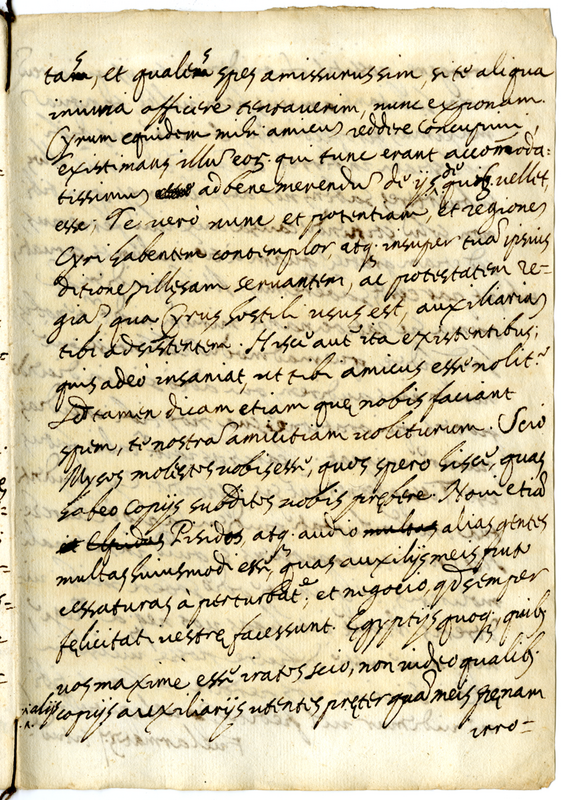 tas, et quales spes amissurus sim, si te aliqua
iniuria afficere tentaverim, nunc exponam.
Cyrum equidem mihi amicũ reddere concupivi,
existimans illũ eorͥ qui tunc erant accom̃oda-
tissimum ad bene merendũ de ijs de quibus vellet
esse; Te verò nunc et potentiam, et regiones
Cyri habentem contemplor, atq; insuper tuã ipsius
ditionẽ illesam servantem, ac potestatem re-
giã, qua Cyrus hostili usus est, auxiliariam
tibi adsistentem. Hisce aut̃ ita existentibus,
quis adeò insaniat, ut tibi amicus esse nolit?
Sed tamen dicam etiam quę nobis faciant
spem, te nostrã amicitiam voliturum. Scio
Mysos molestos vobis esse, quos spero hisce, quas
habeo copijs subditos vobis prębere. Novi etiã
Pisidas, atq; audio multas alias gentes
multas huiusmodi esse, quas auxilijs meis puto
cessaturas à perturbatẽ, et negocio, qd̃ semper
fęlicitati vestrę facessunt. Egyptijs quoq; quibus
vos maxime esse iratos scio, non video qualib;
copijs auxiliarijs utentes pręter quã meis pęnam
irro-